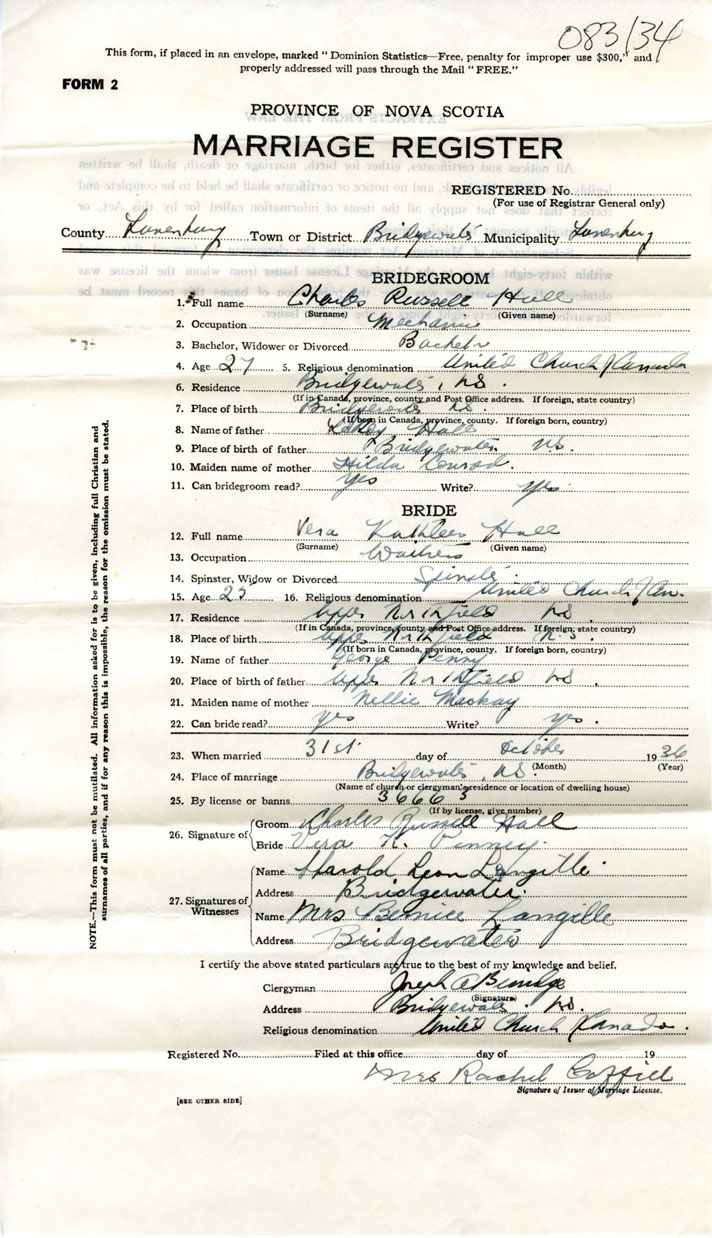 083134
This form, if placed in an envelope, marked "Dominion Statistics—Free, penalty for improper use $300," and
properly addressed will pass through the Mail "FREE."
FORM 2
PROVINCE OF NOVA SCOTIA
MARRIAGE REGISTER
REGISTERED No.
(For use of Registrar General only)
County Lunenburg Town or District Bridgewater Municipality Lunenburg
BRIDEGROOM
1. Full name Charles Russell Hall
(Surname) (Given name)
2. Occupation Mechanic
3. Bachelor, Widower or Divorced Bachelor
4. Age 27 5. Religious denomination United Church Canada
6. Residence Bridgewater, NS.
(If in Canada, province, county and Post Office address. If foreign, state country)
7. Place of birth Bridgewater NS.
(If born in Canada, province, county. If foreign born, country)
8. Name of father Hall
9. Place of birth of father Bridgewater NS.
10. Maiden name of mother Hilda Conrad.
11. Can bridegroom read? Yes Write? yes
BRIDE
12. Full name Vera Kathleen Hall
(Surname) (Given name)
13. Occupation Waitress
14. Spinster, Widow or Divorced Spinster
15. Age 25 16. Religious denomination United Church Can.
17. Residence Upper Northfield NS.
(If in Canada, province, county and Post Office address. If foreign, state country)
18. Place of birth Upper Northfield N.S.
(If born in Canada, province, county. If foreign born, country)
19. Name of father George Penny
20. Place of birth of father Upper Northfield NS.
21. Maiden name of mother Nellie Mackay
22. Can bride read? yes Write? yes.
23. When married 31st day of October 1936
(Month) (Year)
24. Place of marriage Bridgewater, NS.
(Name of church or clergyman's residence or location of dwelling house)
25. By license or banns 36663
(If by license, give number)
26. Signature of Groom Charles Russell Hall
Bride Vera K. Penney
27. Signatures of Witnesses Name Harold Leon Langille
Address Bridgewater.
Name Mrs Bernice Langille
Address Bridgewater
I certify the above stated particulars are true to the best of my knowledge and belief.
Clergyman Joseph A
(Signature)
Address Bridgewater. NS.
Religious denomination United Church Canada.
Registered No. Filed at this office day of 19
Mrs Rachel
Signature of Issuer of Marriage License.
[SEE OTHER SIDE]
NOTE.—This form must not be mutilated. All information asked for is to be given, including full Christian and
surnames of all parties, and if for any reason this is impossible, the reason for the omission must be stated.